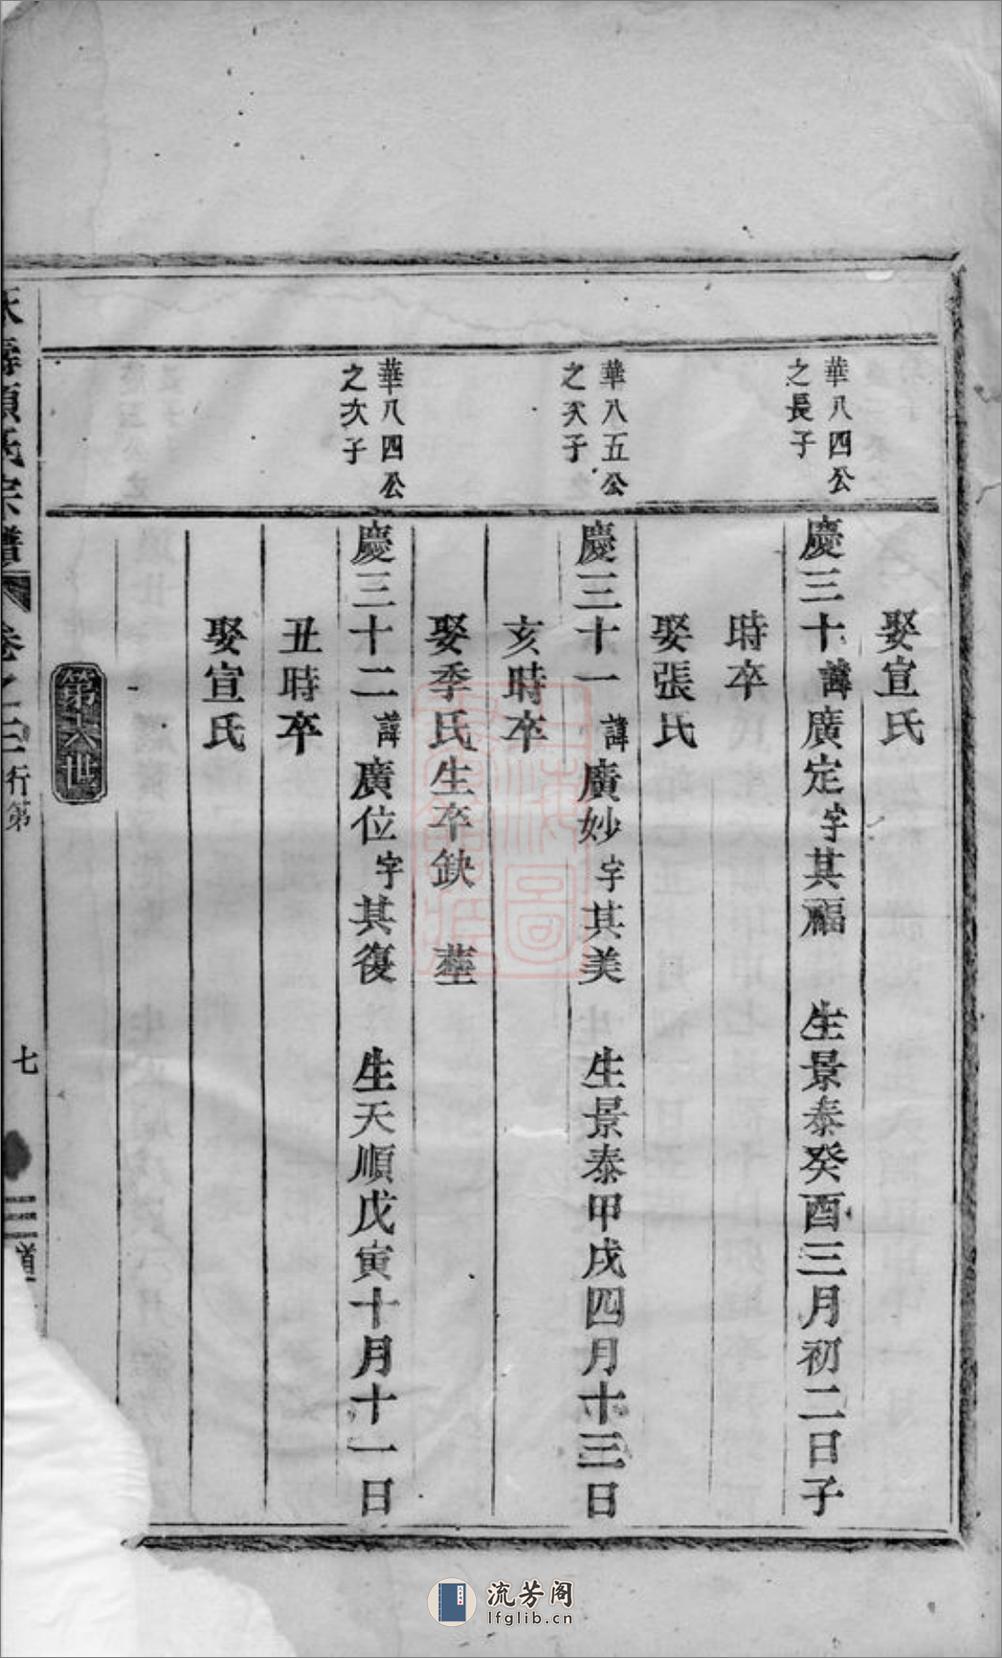 娶宣氏
華八四公
之長子
慶三十諱廣定字其福　生景泰癸酉三月初二日子
時卒
娶張氏
華八五公
之次子
慶三十一諱廣妙字其美　生景泰甲戌四月十三日
亥時卒
娶季氏生卒缺　葬
華八四公
之次子
慶三十二諱廣位字其復　生天順戊寅十月十一日
丑時卒
娶宣氏
第十六世
氏宗譜　卷之三行第　七
流芳阁
lfglib.cn